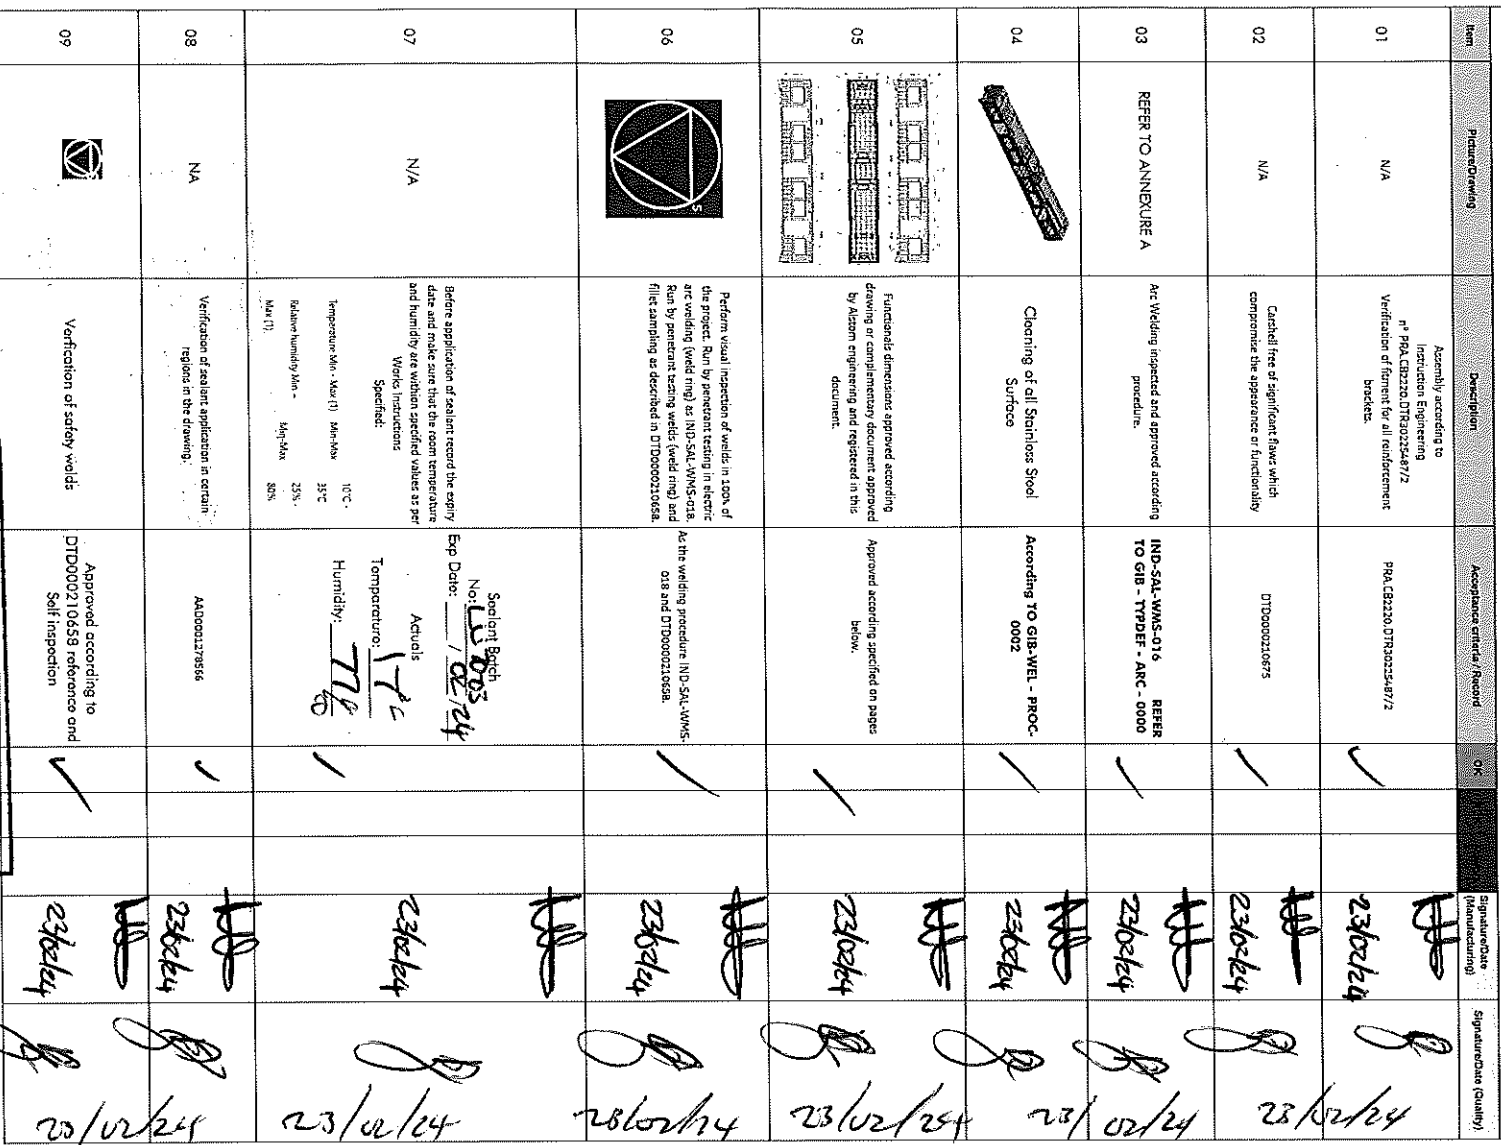 Item Picture/Drawing Description Acceptance criteria / Record OK Signature/Date (Manufacturing) Signature/Date (Quality)
01
N/A
Assembly according to
Instruction Engineering
nº PRA.CB2220.DTR30225487/2
Verification of fitment for all reinforcement
brackets.
PRA.CB2220.DTR30225487/2
23/02/24
02
N/A
Carshell free of significant flaws which
compromise the appearance or functionality
DTD0000210675
23/02/24
23/02/24
03
REFER TO ANNEXURE A
Arc Welding inspected and approved according
procedure.
IND-SAL-WMS-016 REFER
TO GIB - TYPDEF - ARC - 0000
23/02/24
04
Cleaning of all Stainless Steel
Surface
According TO GIB-WEL - PROC-
0002
23/02/24
23/02/24
05
Functionals dimensions approved according
drawing or complementary document approved
by Alstom engineering and registered in this
document.
Approved according specified on pages
below.
23/02/24
23/02/24
06
S
Perform visual inspection of welds in 100% of
the project. Run by penetrant testing in electric
arc welding (weld ring) as IND-SAL-WMS-018.
Run by penetrant testing welds (weld ring) and
fillet sampling as described in DTD0000210658.
As the welding procedure IND-SAL-WMS-
018 and DTD0000210658.
23/02/24
23/02/24
07
N/A
Before appplication of sealant record the expiry
date and make sure that the room temperature
and humidity are withion specified values as per
Works Instructions
Specified:
Temperature Min - Max (1) Min-Max 10°C -
35°C
Relative humidity Min - Min-Max 25% -
Max (1) 80%
Sealant Batch
No:
Exp Date: / 02/24
Actuals
Temparature: 17°C
Humidity:
23/02/24
23/02/24
08
NA
Verification of sealant application in certain
regions in the drawing.
AAD0001278566
23/02/24
09
Verfication of safety welds
Approved according to
DTD0000210658 reference and
Self inspection
23/02/24
23/02/24